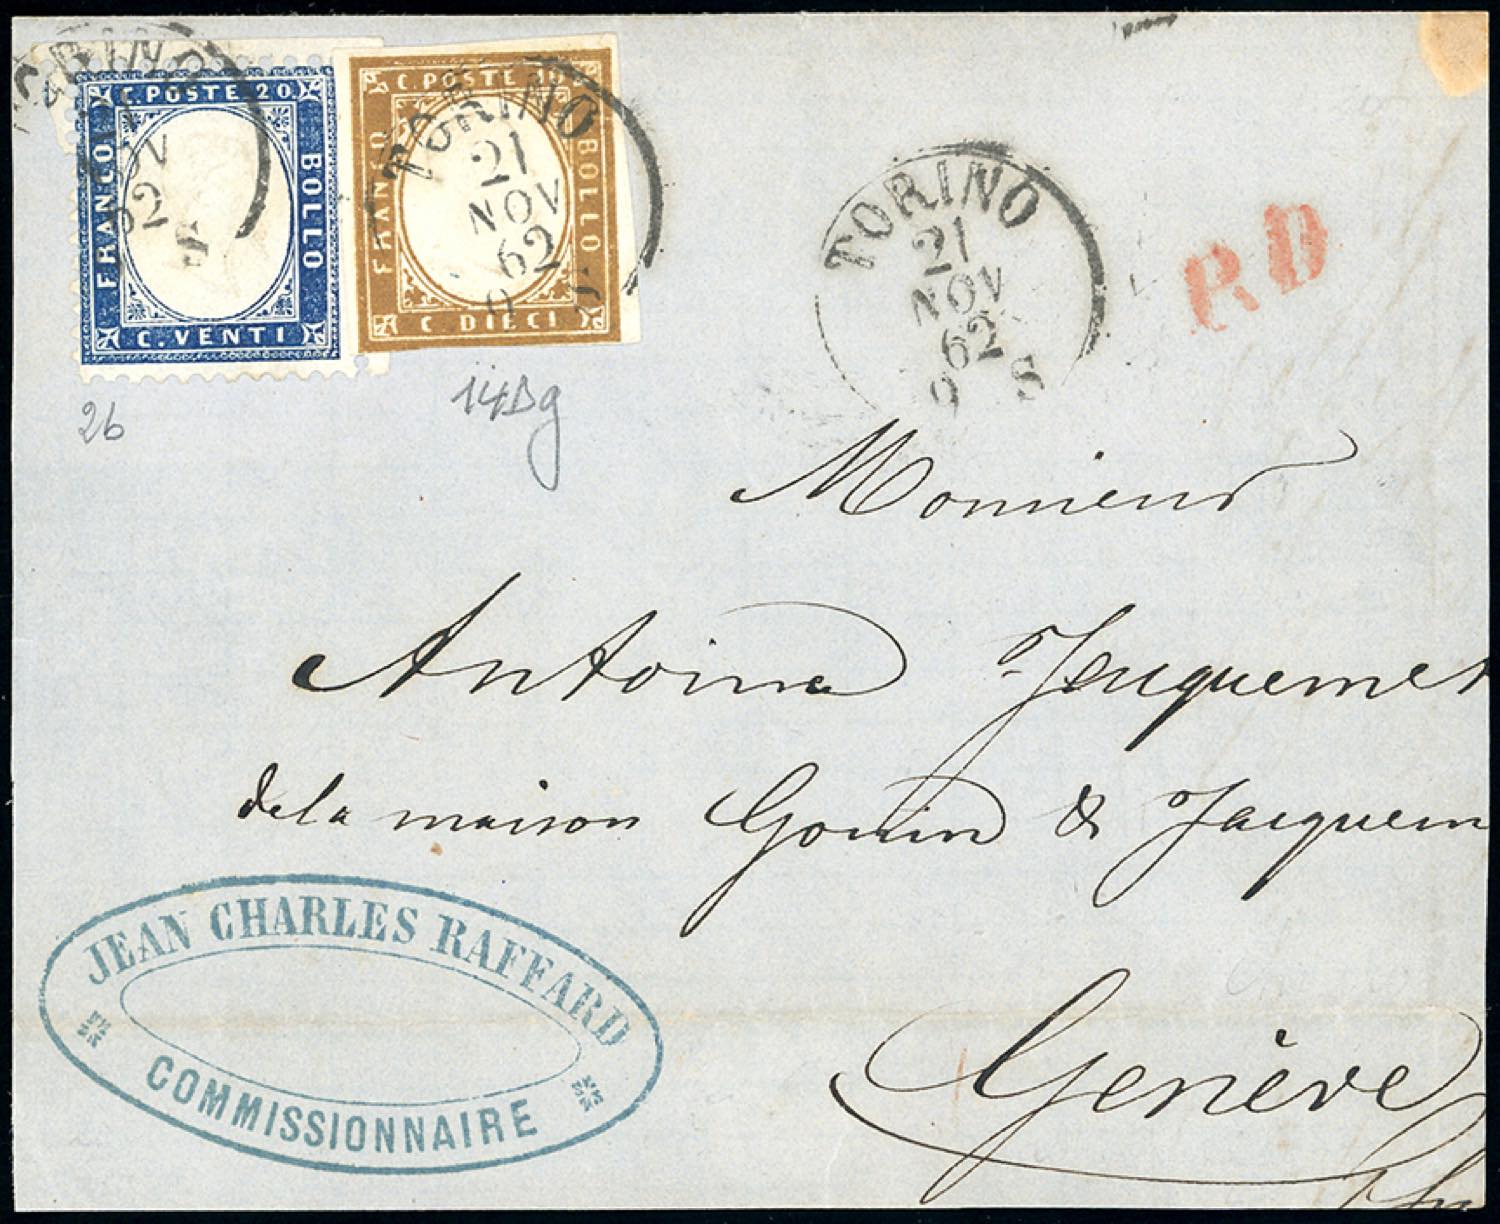 C. POSTE 20.
FRANCO
BOLLO
C. VENTI
C. POSTE 10
FRANCO
BOLLO
C DIECI
TORINO
NOV
62
S
TORINO
21
NOV
62
9 S
TORINO
21
NOV
62
9 S
P.D
26
14Dg
Monsieur
Antoine Jacquemet
de la maison Gonin & Jacquem
Genève
JEAN CHARLES RAFFARD
COMMISSIONNAIRE